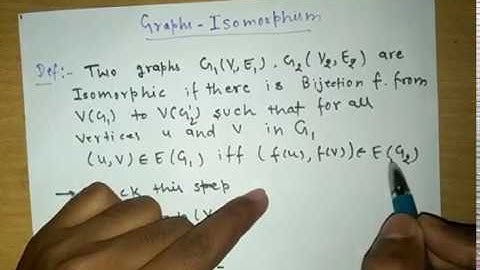 Graphs - Isomorphism
Def:- Two graphs G₁(V₁,E₁), G₂(V₂,E₂) are
Isomorphic if there is Bijection f. from
V(G₁) to V(G₂) such that for all
vertices u and v in G₁
(u,v) ∈ E(G₁) iff (f(u), f(v)) ∈ E(G₂)
this step